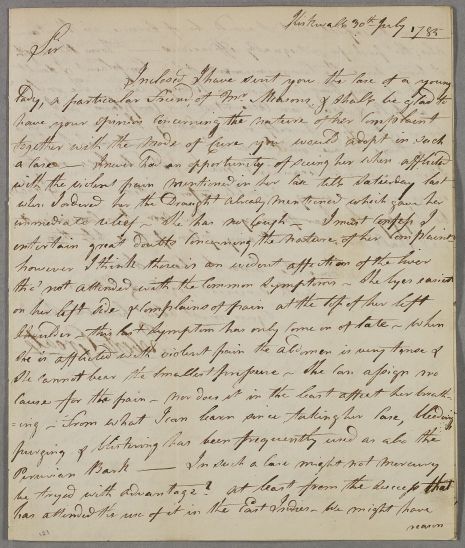 Kirkwall 30th July 1785
Sir
Inclosed I have sent you the case of a young
Lady, a particular Friend of Mrs Measons, & shall be glad to
have your opinion concerning the nature of her Complaint
together with the mode of cure you would adopt in such
a case — I never had an opportunity of seeing her when afflicted
with the violent pain mentioned in her case till Saturday last
when I ordered her the Draught already mentioned which gave her
immediate relief — She has no Cough — I must confess I
entertain great doubts concerning the nature of her Complaint
however I think there is an evident affection of the liver
tho' not attended with the common symptoms — She lyes easiest
on her left side & complains of pain at the top of her left
shoulder — this last symptom has only come on of late — When
she is afflicted with violent pain the abdomen is very tense &
she cannot bear the smallest pressure — She can assign no
cause for the pain — nor does it in the least affect her breath-
-ing — From what I can learn since taking her case, bleeding
purging & blistering has been frequently used as also the
Peruvian Bark — In such a case might not mercury
be tryed with advantage? at least from the success that
has attended the use of it in the East Indies — we might have
reason